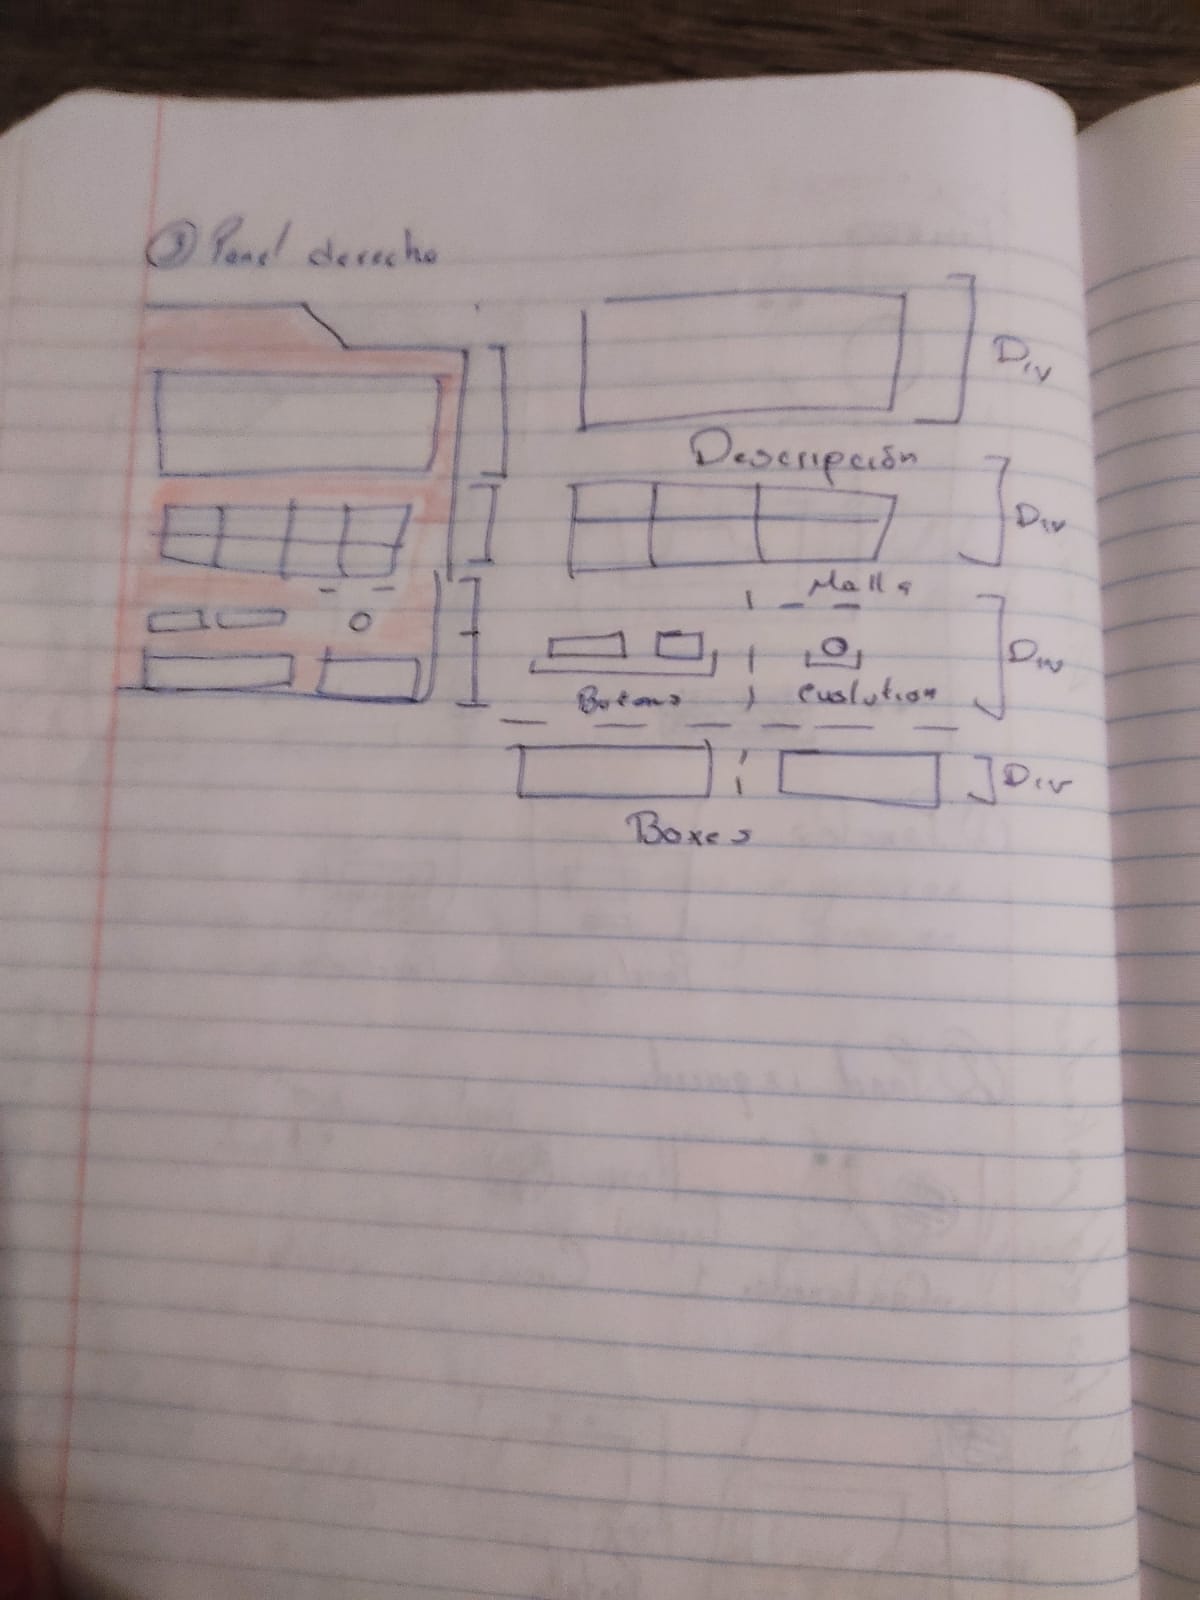 ③ Panel derecho
Div
Descripción
Div
Malla
Div
Botons evolution
Div
Boxes